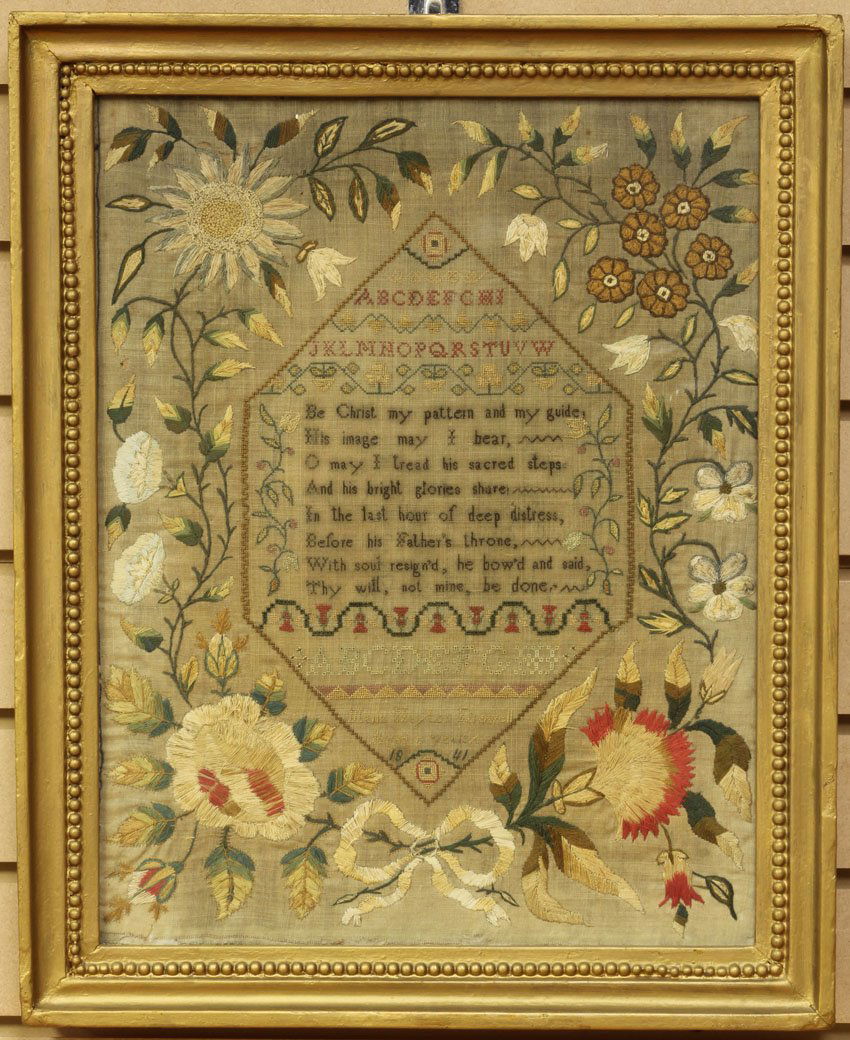 ABCDEFGHI
JKLMNOPQRSTUVW
Be Christ my pattern and my guide,
His image may I bear,
O may I tread his sacred steps
And his bright glories share
In the last hour of deep distress,
Before his Father's throne,
With soul resign'd, he bow'd and said,
Thy will, not mine, be done.
ABCDEFGHI
1841